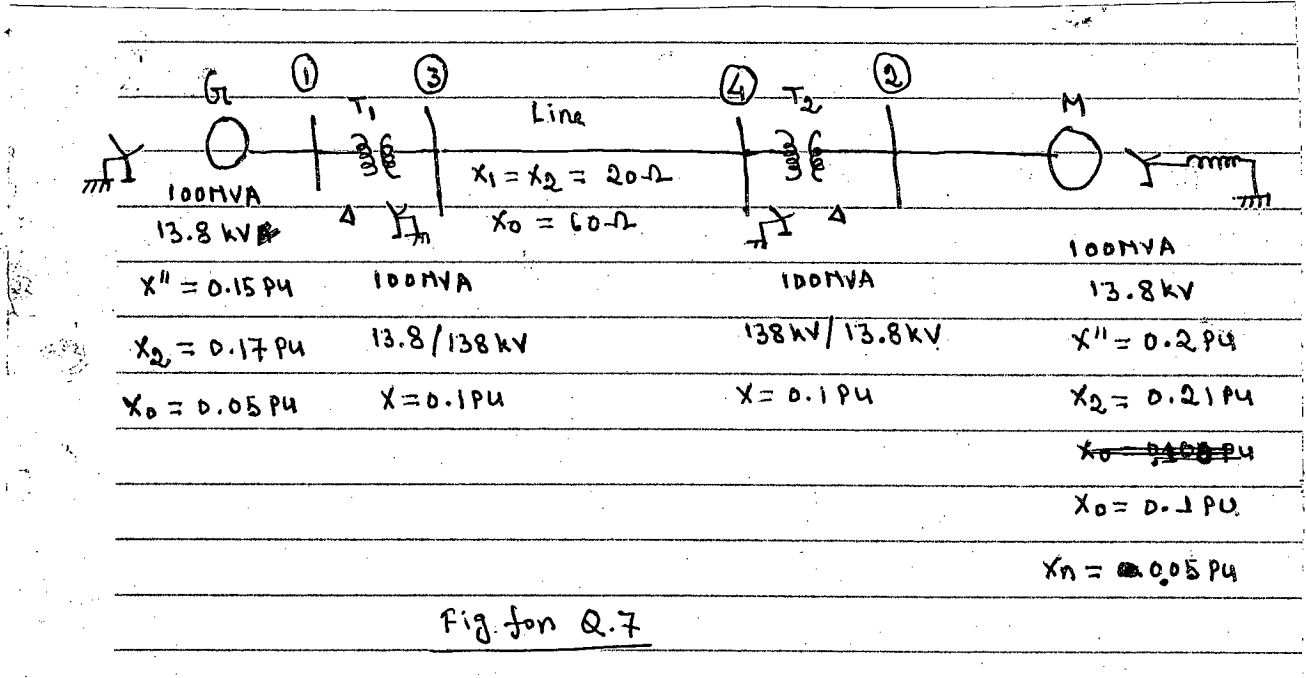 G ① T₁ ③ Line ④ T₂ ② M
X₁ = X₂ = 20Ω
X₀ = 60Ω
100MVA
13.8 kV
X" = 0.15 PU
X₂ = 0.17 PU
X₀ = 0.05 PU
Δ
100MVA
13.8/138 kV
X = 0.1 PU
Δ
100MVA
138 kV/13.8 kV
X = 0.1 PU
100MVA
13.8 kV
X" = 0.2 PU
X₂ = 0.21 PU
X₀ = 0.1 PU
Xn = 0.05 PU
Fig. for Q.7